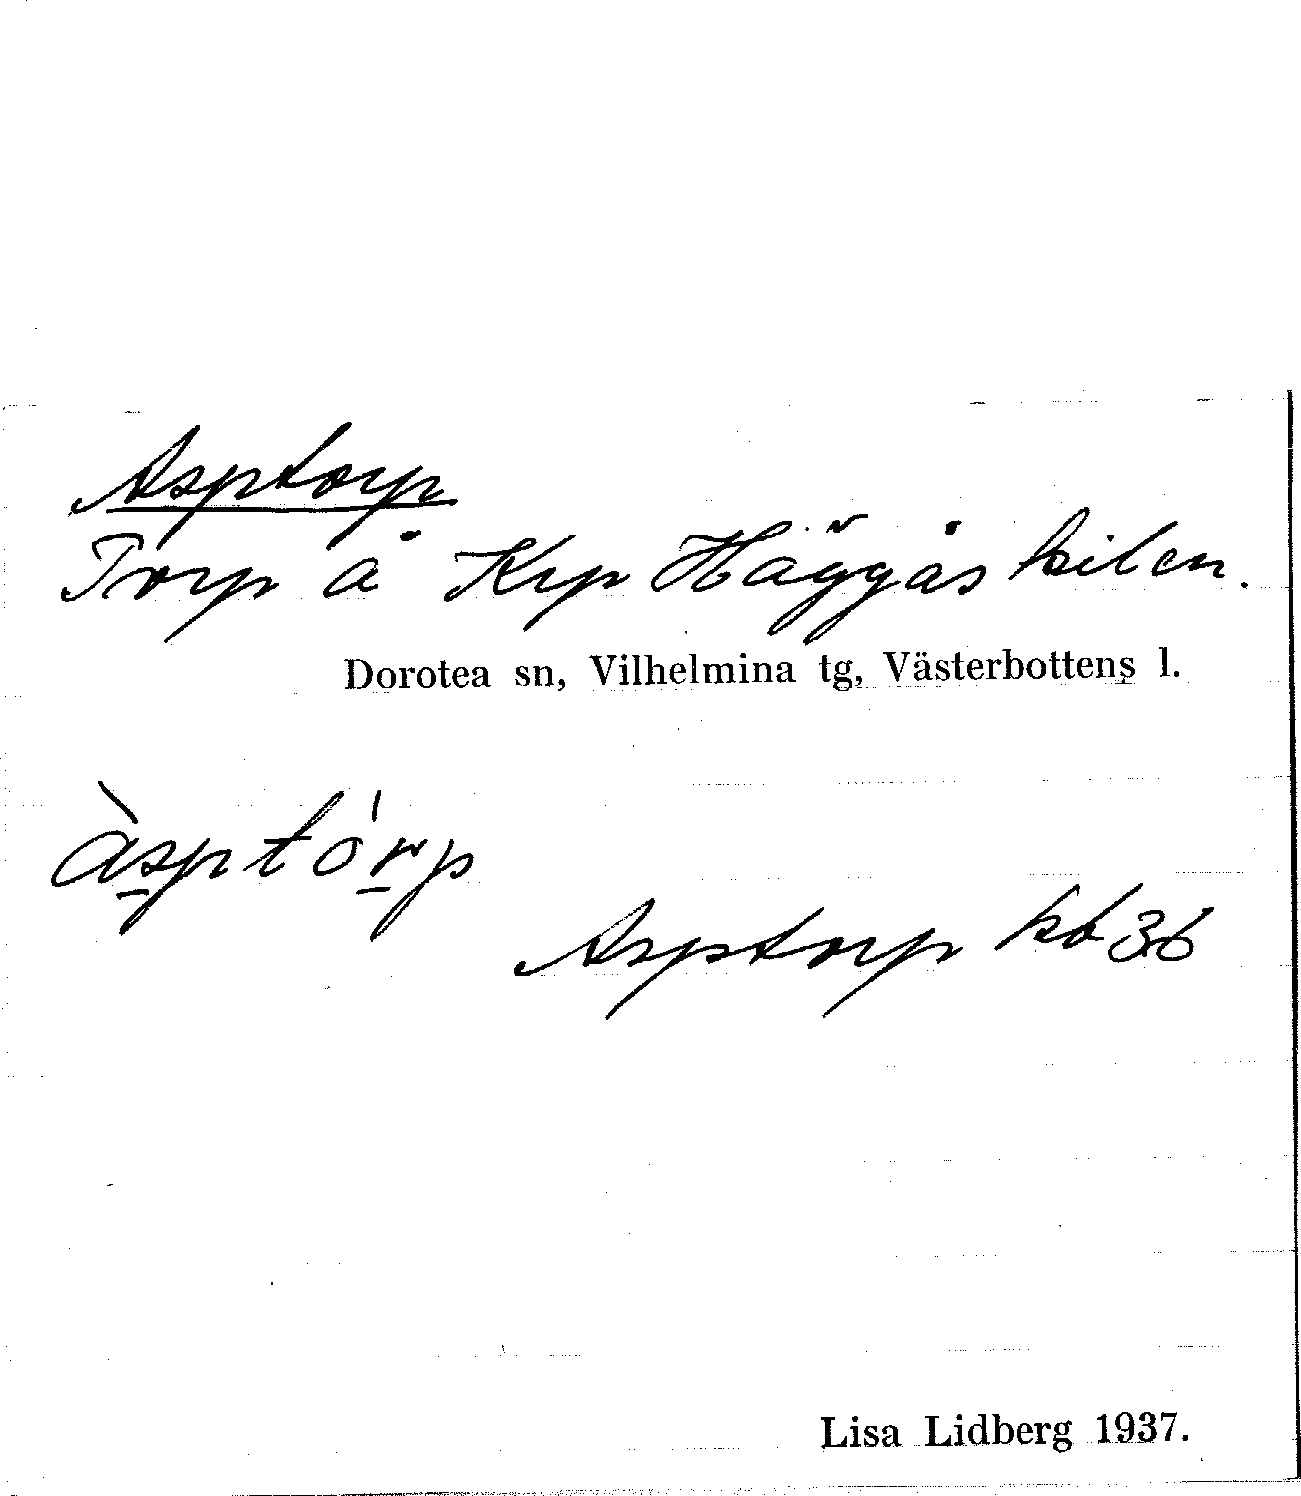 Asptorp
Torp å Krp Häggåskilen.
Dorotea sn, Vilhelmina tg, Västerbottens l.
àsptórp
Asptorp kb 36
Lisa Lidberg 1937.